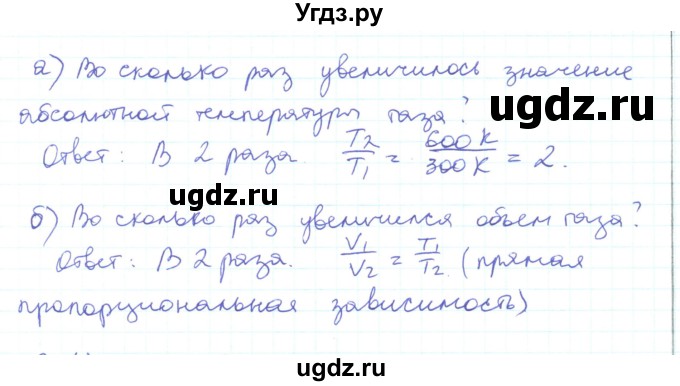 Угдз.ру
а) Во сколько раз увеличилось значение
абсолютной температуры газа?
ugdz.ru
Ответ: В 2 раза. T2/T1 = 600 K/300 K = 2.
ugdz.ru
б) Во сколько раз увеличился объем газа?
Ответ: В 2 раза. V1/V2 = T1/T2 (прямая
ugdz.ru
пропорциональная зависимость)
ugdz.ru